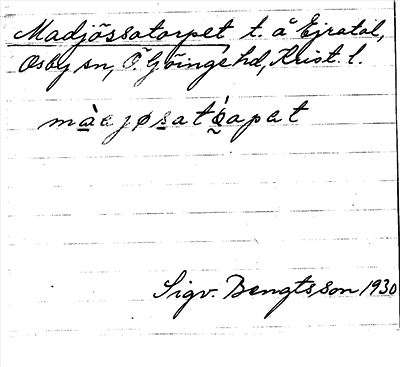 Madjössatorpet t. å Ejratal,
Osby sn, Ö. Göinge hd, Krist. l.
Sigv. Bengtsson 1930